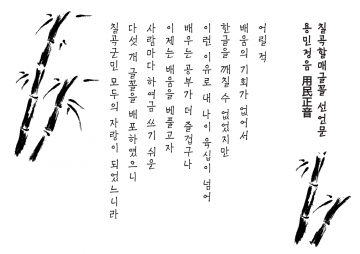 칠곡할매글꼴 선언문
용민정음 用民正音
어릴 적
배움의 기회가 없어서
한글을 깨칠 수 없었지만
이런 이유로 내 나이 육십이 넘어
배우는 공부가 더 즐겁구나
이제는 배움을 베풀고자
사람마다 하여금 쓰기 쉬운
다섯 개 글꼴을 배포하였으니
칠곡군민 모두의 자랑이 되었느니라